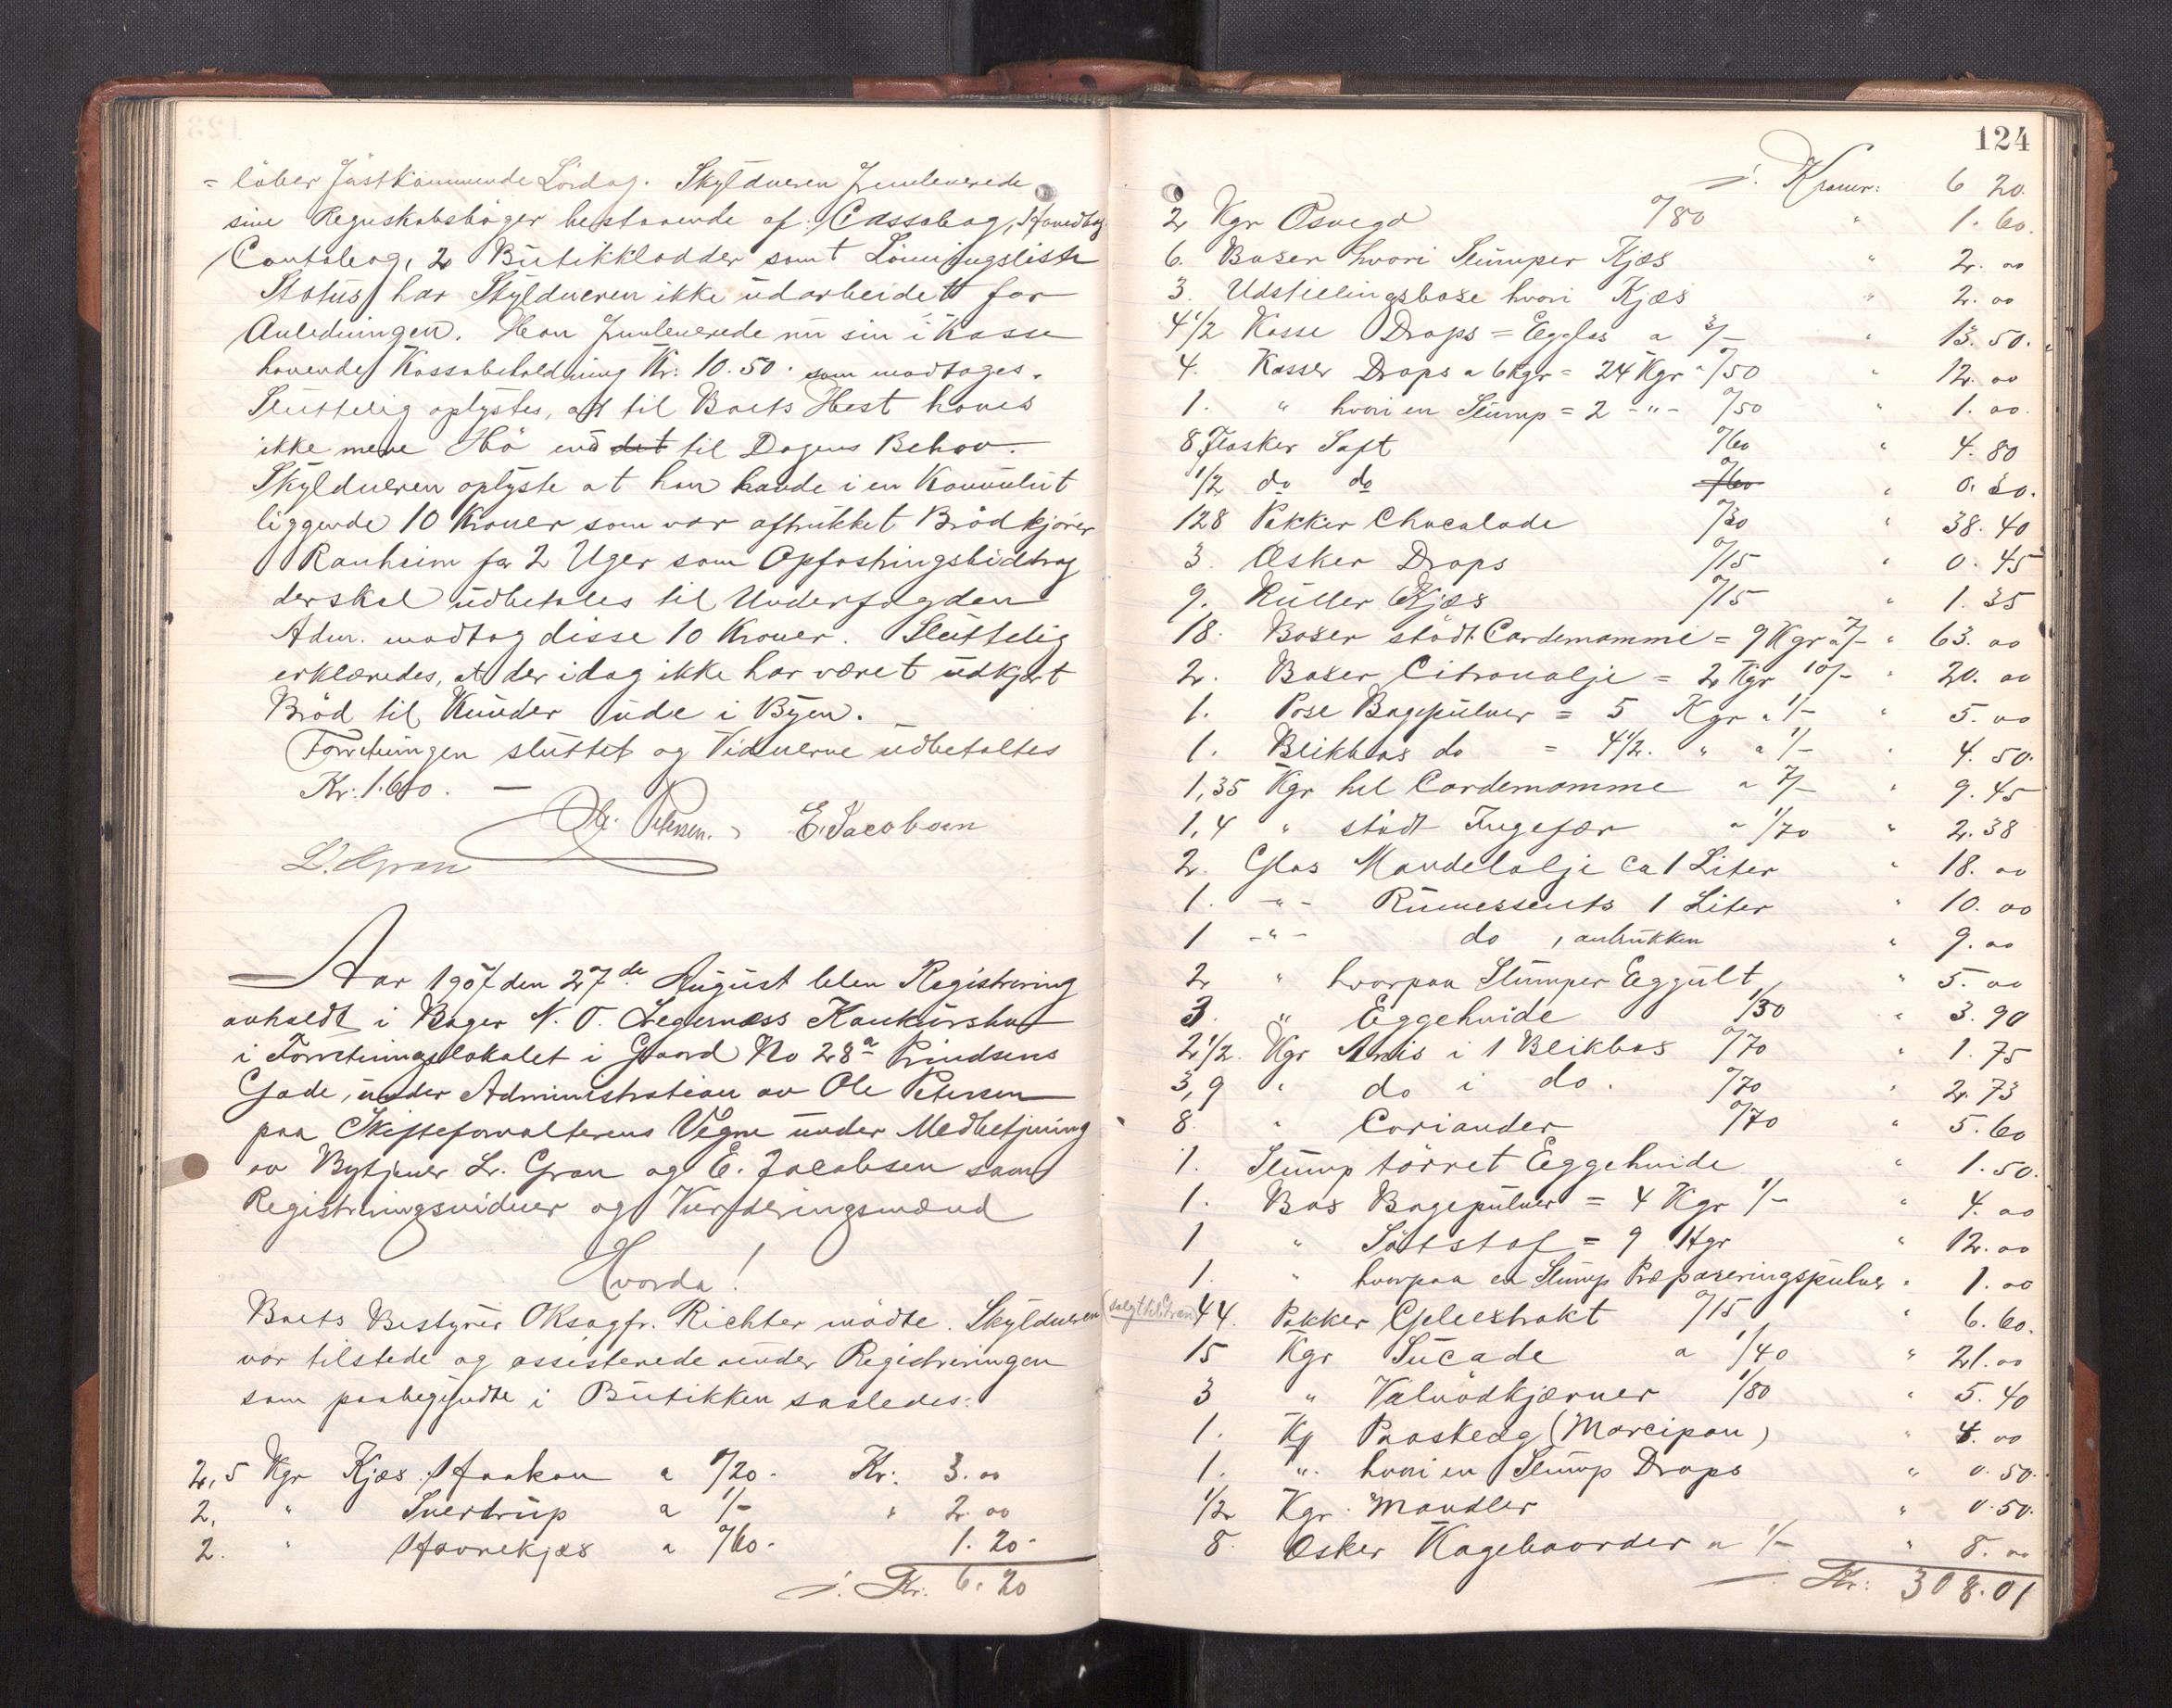 = löber förstkommende Lördag. Skyldneren fremleverede
sine Regnskabsböger bestaaende af: Cassabog, Hovedbog
Contobog, 2 Butikkladder samt Lönningsliste
Status har Skyldneren ikke udarbeidet for
Anledningen. Han fremleverede nu sin i Kasse
havende Kassabeholdning Kr: 10.50. som modtoges.
Sluttelig oplystes, at til Boets Hest haves
ikke mere Hö end det til Dagens Behov.
Skyldneren oplyste at han havde i en Konvolut
liggende 10 Kroner som var aftrukket Brödkjörer
Ranheim for 2 Uger som Opfostringsbidrag
der skal udbetales til Underfogden
Adm. modtog disse 10 Kroner. Sluttelig
erklæredes, at der idag ikke har været udkjört
Bröd til Kunder ude i Byen.
Forretningen sluttet og Vidnerne udbetaltes
Kr: 1.60. —
Ole Petersen. E. Jacobsen
L. Gran
Aar 1907 den 27de August blev Registrering
avholdt i Bager N. O. Legernæss Konkursbo
i Forretningslokalet i Gaard No 28a Prindsens
Gade, under Administration av Ole Petersen
paa Skifteforvalterens Vegne under Medbetjening
av Bytjener Lr. Gran og E. Jacobsen som
Registreringsvidner og Vurderingsmænd
Hvorda!
Boets Bestyrer OKsagfr. Richter mödte. Skyldneren
var tilstede og assisterede under Registreringen
som paabegyndte i Butikken saaledes:
2,5 Kgr Kjæs Haakon a 1/20. Kr: 3.00
2, " Sverdrup a 1/- " 2.00
2. " Havrekjæs a 0/60. 1.20.
/. Kr. 6.20
124
/. Kroner: 6 20.
2 Kgr Osvego 0/80 " 1.60.
6. Boser hvori Slumper Kjæs " 2.00
3. Udstillingsbose hvori Kjæs " 2.00
4 1/2 Kasse Drops = Egglas a 3/- " 13.50.
4. Kasser Drops a 6 Kgr = 24 Kgr a 0/50 " 12.00
1. " hvori en Slump = 2 -"- 0/50 " 1.00.
8 Flasker Saft 0/60 " 4.80
1/2 do do 0/60 " 0.30.
128 Pakker Chocolade 0/30 " 38.40
3. Æsker Drops 0/15 " 0.45
9. Ruller Kjæs 0/15 " 1.35
18. Boser stödt Cardemomme = 9 Kgr a 7/- " 63.00
2. Boser Citronolje = 2 Kgr 10/- " 20.00
1. Pose Bagepulver = 5 Kgr a 1/- " 5.00
1. Blikbos do = 4 1/2. " a 1/- " 4.50.
1,35 Kgr hel Cardemomme a 7/- " 9.45
1,4 " stödt Ingefær a 1/70 " 2.38
2. Glas Mandelolje ca 1 Liter " 18.00
1. -"- Rumessents 1 Liter " 10.00
1 -"- do , anbrukken " 9.00
2 " hvorpaa Slumper Eggult " 5.00
3. " Eggehvide 1/30 " 3.90
2 1/2. Kgr Anis i 1 Blikbos 0/70 " 1.75
3,9 " do i do. 0/70 " 2.73
8. " Coriander 0/70 " 5.60
1. Slump törret Eggehvide " 1.50.
1. Bos Bagepulver = 4 Kgr 1/- " 4.00
1 " Sötstof = 9 Hgr " 12.00
1. " hvorpaa en Slump Præpareringspulver " 1.00
44. Pakker Geleextrakt 0/15 " 6.60.
15 Kgr Sucade a 1/40 " 21.00
3 " Valnödkjærner 1/80 " 5.40
1. Kg Paaskeæg (Marcipan) " 4.00
1. " hvori en Slump Drops " 0.50.
1/2 Kgr. Mandler " 0.50.
8. Æsker Kagebaarder a 1/- " 8.00
/. Kr: 308.01